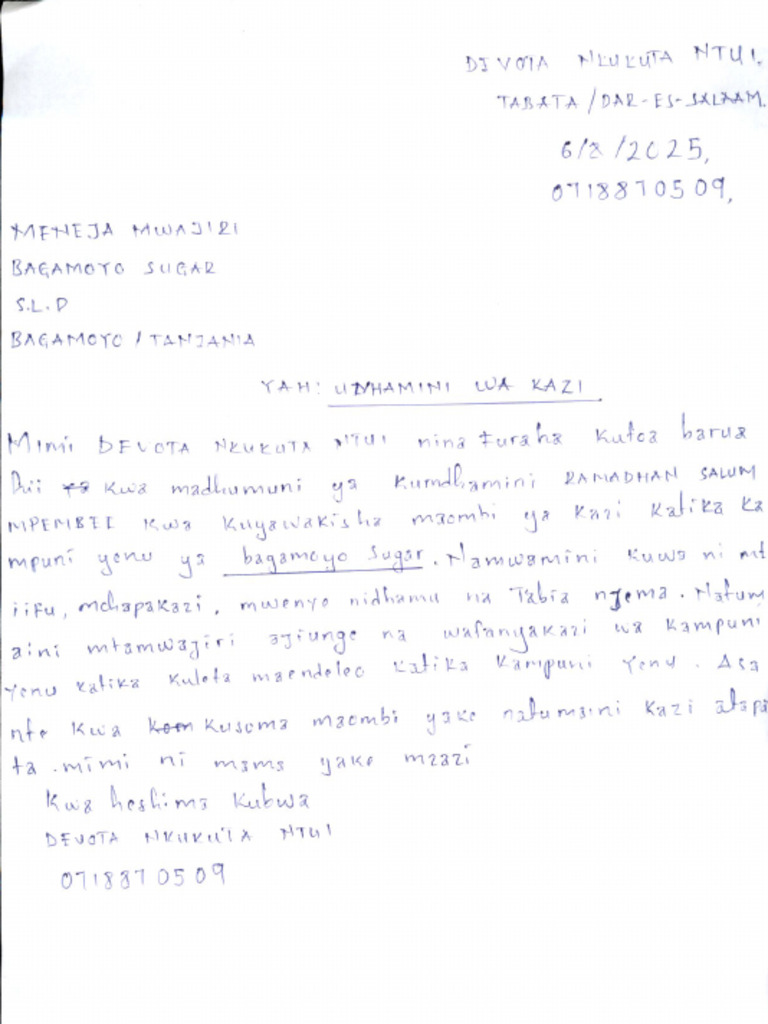 DIVOTA NKUKUTA NTUI.
TABATA / DAR-ES-SALAAM.
6/8/2025,
0718870509,
MENEJA MWAJIRI
BAGAMOYO SUGAR
S.L.P
BAGAMOYO / TANZANIA
YAH: UDHAMINI WA KAZI
Mimi DEVOTA NKUKUTA NTUI nina furaha kutoa barua
hii kwa madhumuni ya kumdhamini RAMADHAN SALUM
MPEMBEE kwa kuyawakisha maombi ya kazi katika ka
mpuni yenu ya bagamoyo sugar. Namwamini kuwa ni mt
iifu, mchapakazi, mwenye nidhamu na Tabia njema. Natum
aini mtamwajiri ajiunge na wafanyakazi wa kampuni
yenu katika kuleta maendeleo katika kampuni yenu. Asa
nte kwa kusoma maombi yake natumaini kazi atapa
ta. mimi ni mama yake mzazi
Kwa heshima kubwa
DEVOTA NKUKUTA NTUI
0718870509